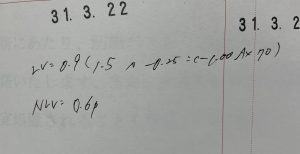 31. 3. 22
31. 3. 2
LV=0.9(1.5 × -0.25 =c-1.00 A× 70)
NLV= 0.6p